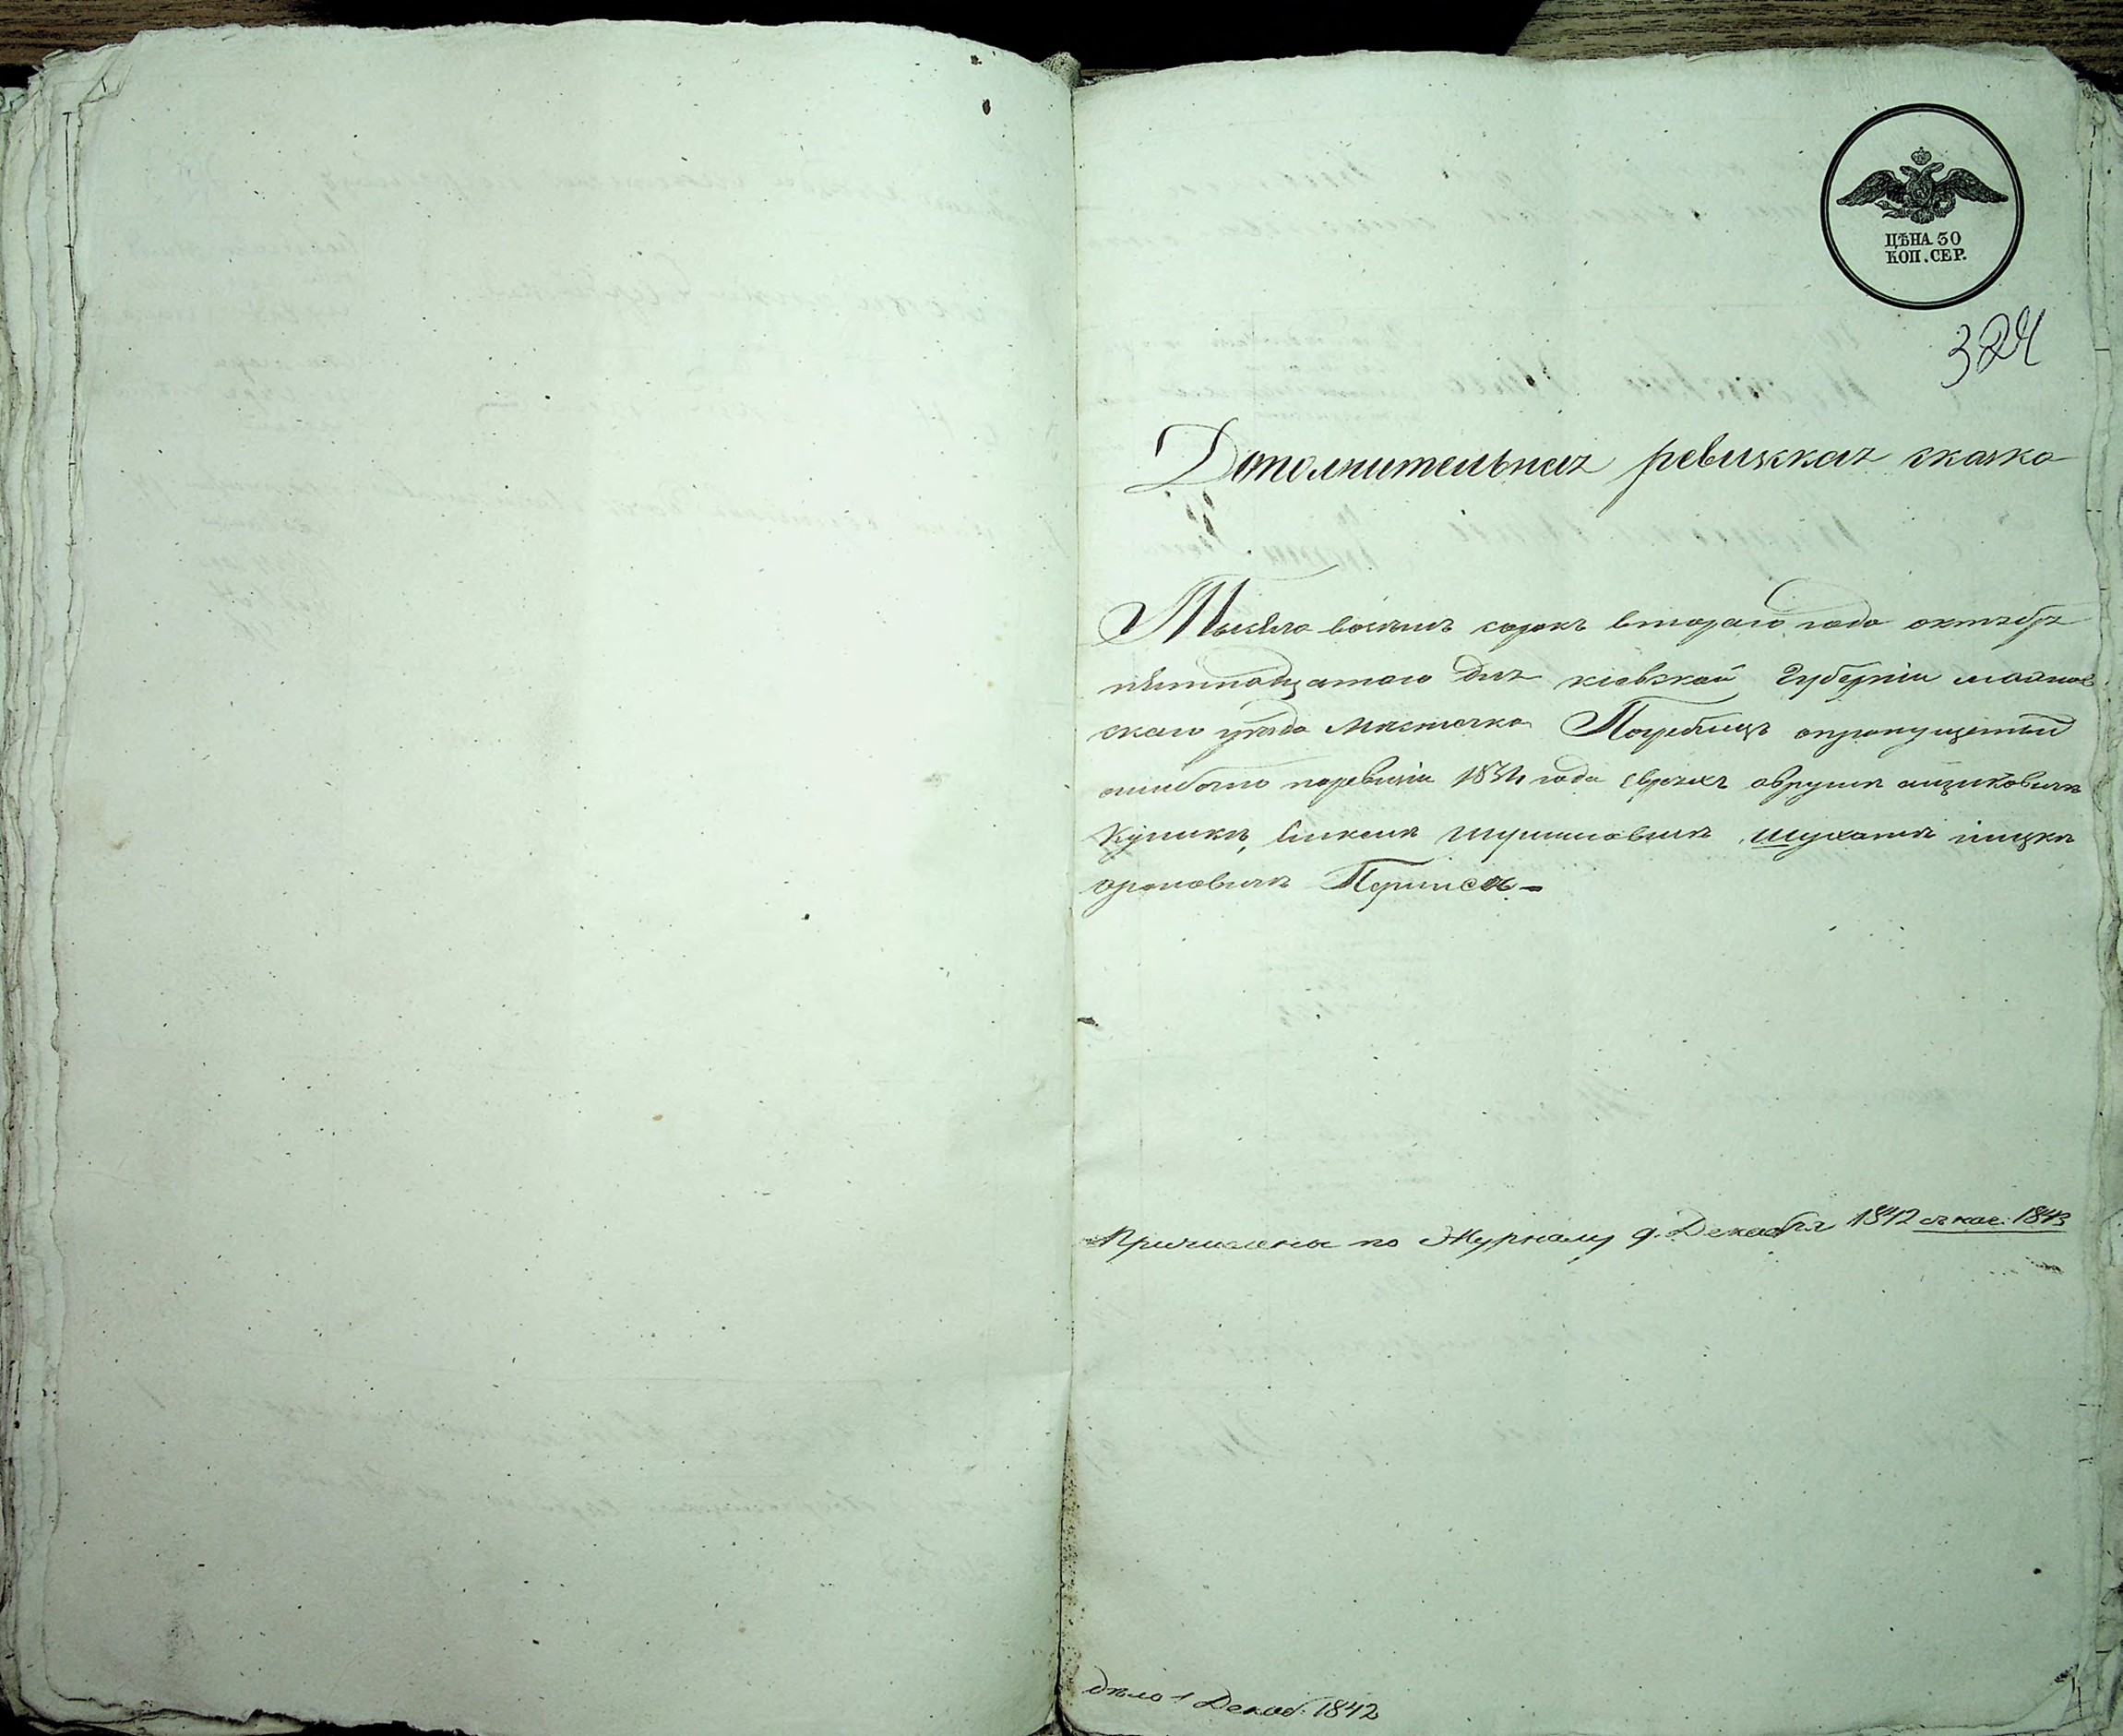 ЦѢНА 30
КОП. СЕР.
324
Дополнительная ревизкая сказка
Тысяча восемъ сорокъ втораго года октября
пятнадцатого дня кіевской Губерніи махнов
скаго уѣзда мястечка Погребищъ опропущенъи
ошибочно поревизіи 1834 года евреяхъ аврумѣ айзиковичѣ
Куликѣ, шухатѣ ицкѣ
ароновичѣ
Причислены по Журналу 9. Декабря 1842 съ кас: 1843
дѣло 1 Декаб: 1842